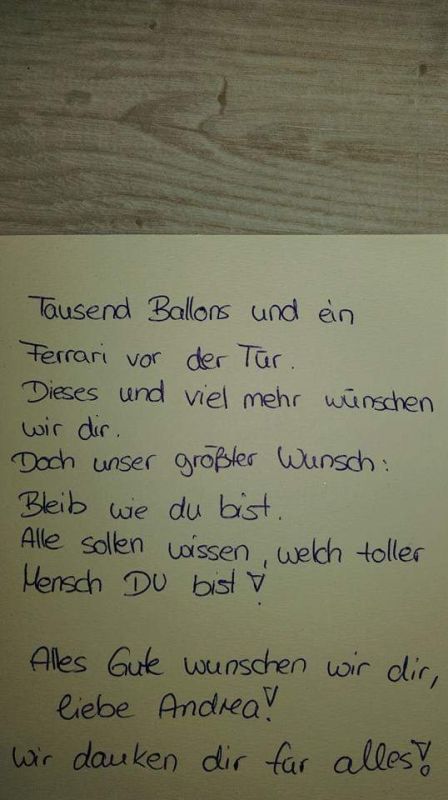 Tausend Ballons und ein
Ferrari vor der Tür.
Dieses und viel mehr wünschen
wir dir.
Doch unser größter Wunsch:
Bleib wie du bist.
Alle sollen wissen, welch toller
Mensch DU bist!
Alles Gute wünschen wir dir,
liebe Andrea!
Wir danken dir für alles!